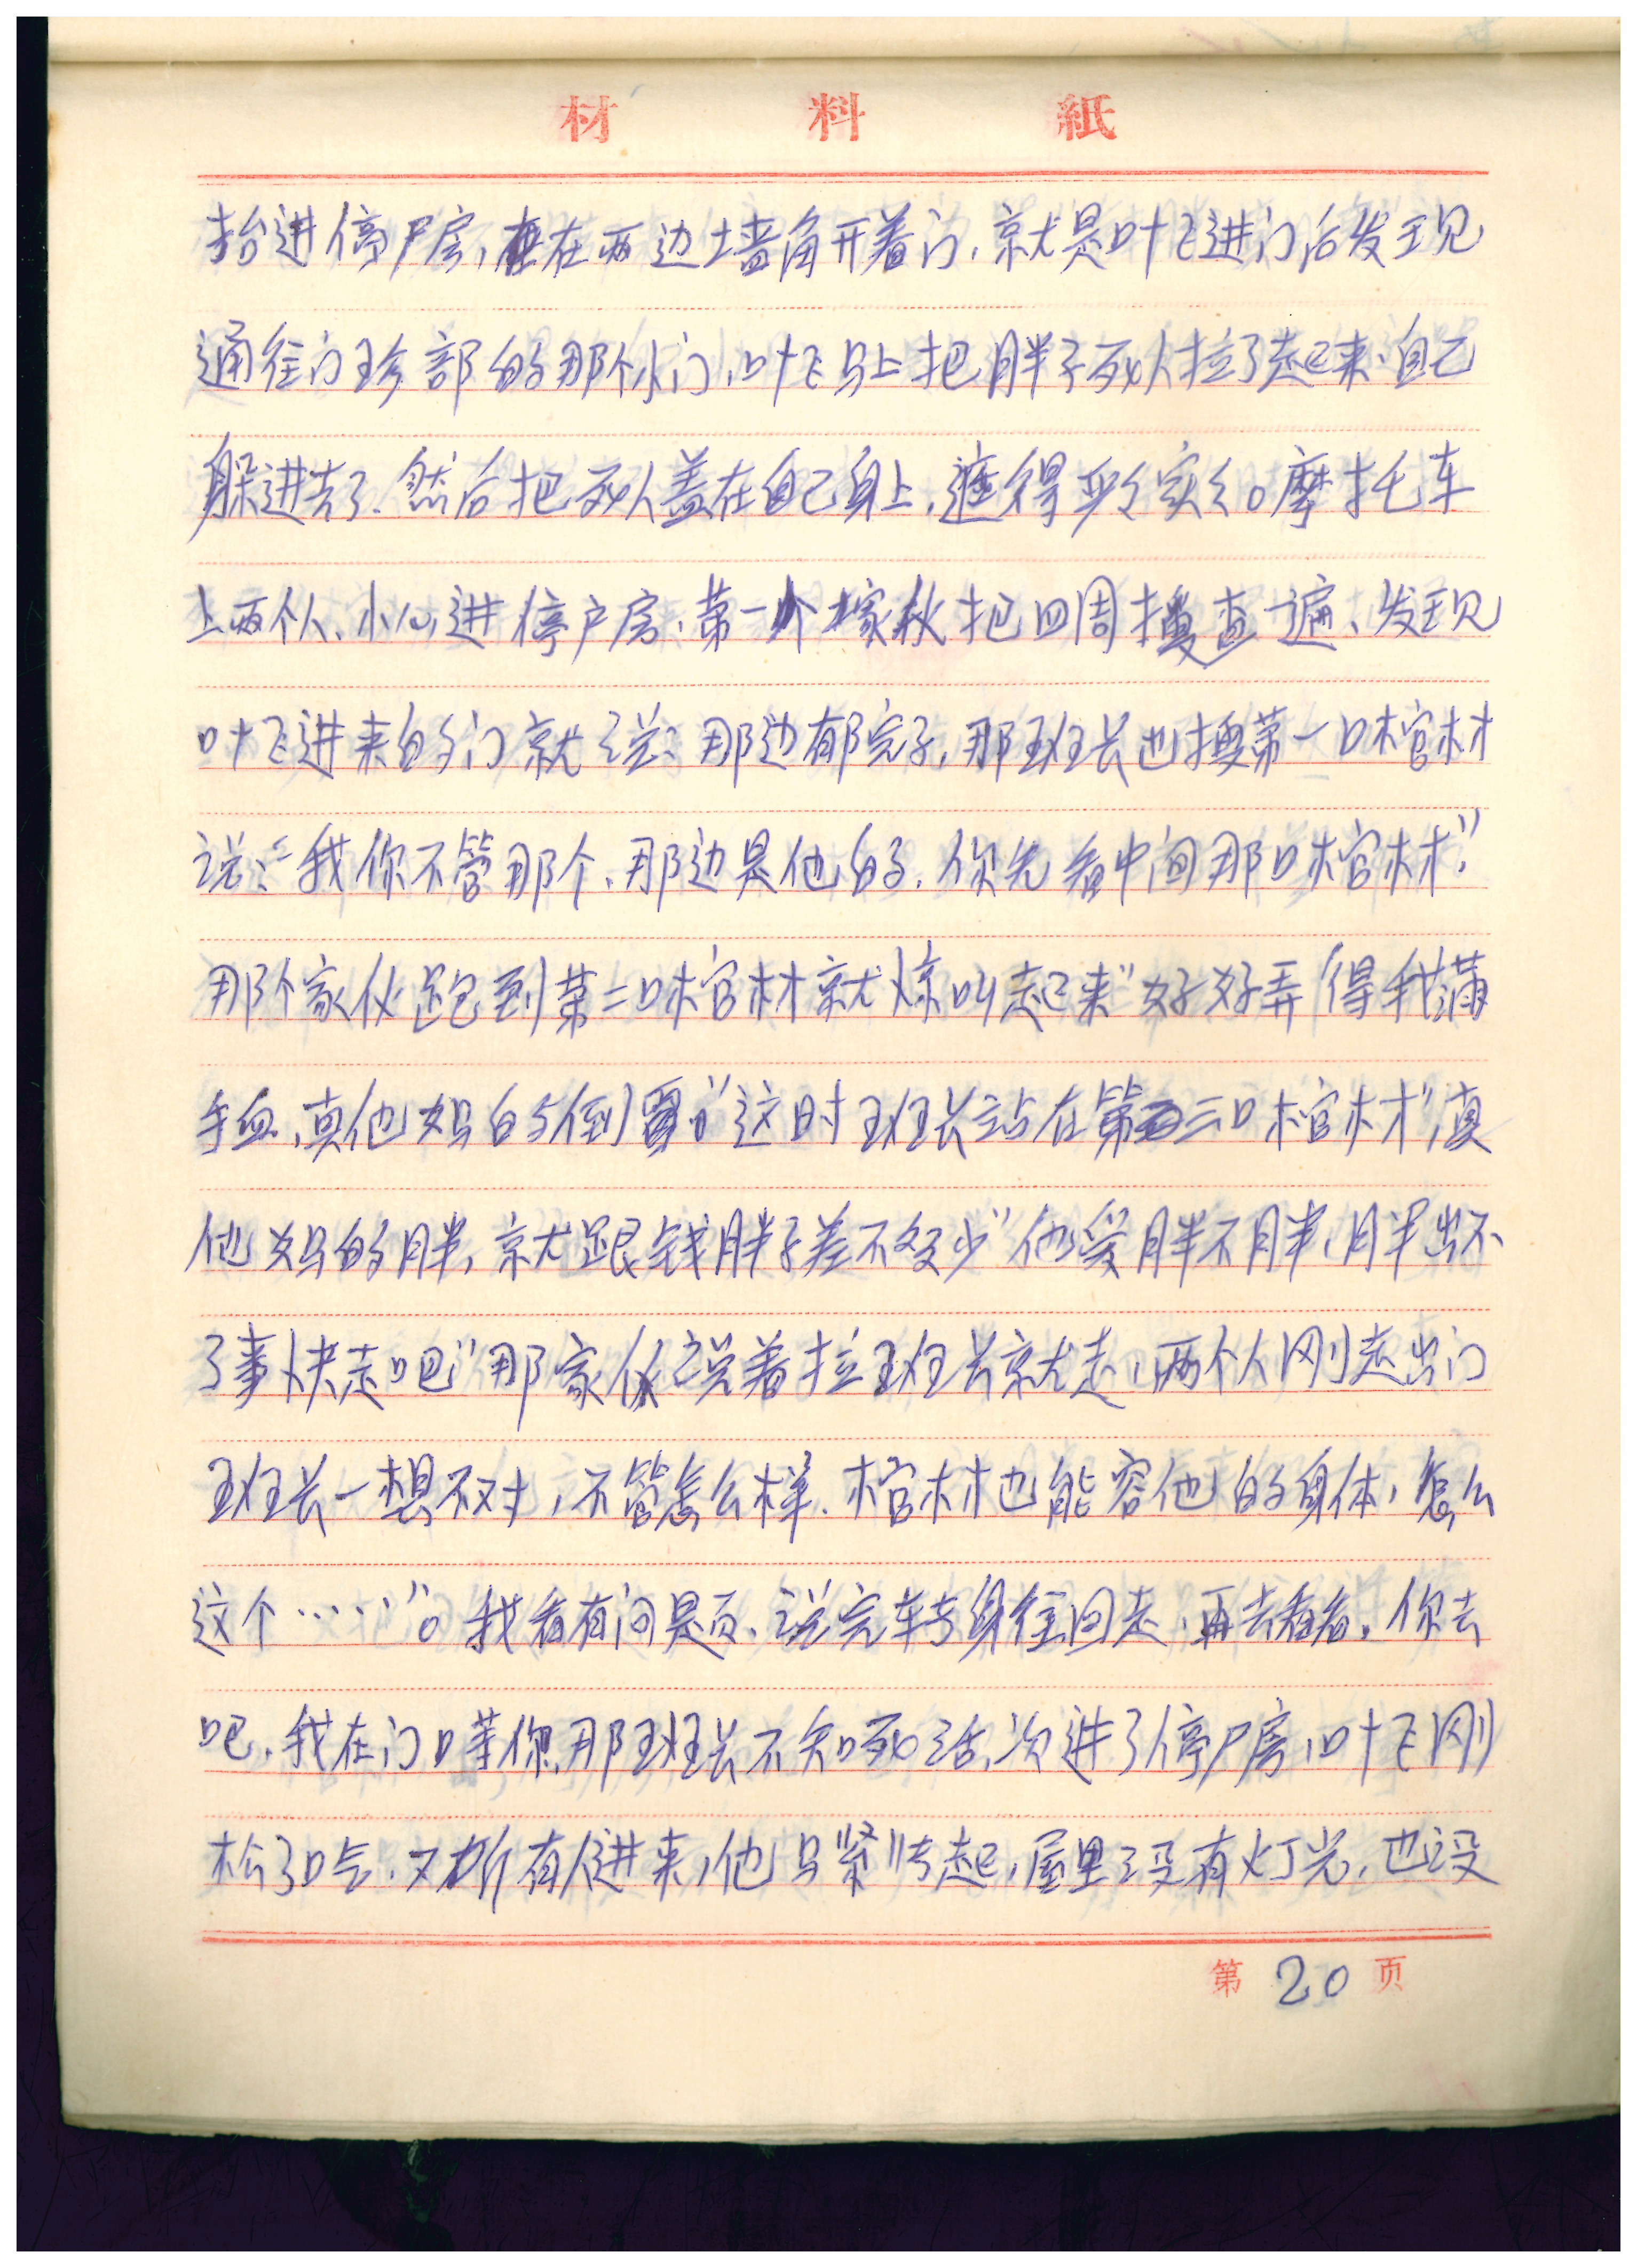 材料紙
抬进停尸房,在两边墙角开着门,就是叶飞进门后发现
通往门珍部的那个小门,叶飞马上把胖子死人拉了起来、自己
躲进去了、然后把死人盖在自己身上,遮得严严实实。摩托车
上两个人、小心进停户房、第一个家伙把四周搜查一遍、发现
叶飞进来的门就说:那边有院子,那班长也搜第一口棺材
说:“我你不管那个、那边是他的、你先看中间那口棺材”
那个家伙跑到第二口棺材就惊叫起来“好好弄得我满
手血,真他妈的倒霉”这时班长站在第三口棺材“真
他妈的胖,就跟钱胖子差不多少”他爱胖不胖,胖出不
了事快走吧”那家伙说着拉班长就走,两个人刚走出门
班长一想不对,不管怎么样、棺材也能容他的身体,怎么
这个……”。我看有问题、说完转身往回走、再去看看。你去
吧、我在门口等你、那班长不知死活、次进了停尸房,叶飞刚
松了口气、又听有人进来,他马紧张起,屋里没有灯光、也没
第20页